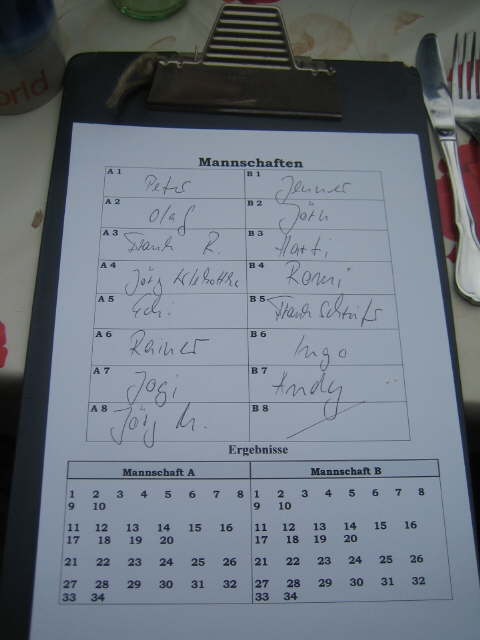 orld
Mannschaften
A 1 Peter B 1
A 2 Olaf B 2 Jörn
A 3 Frank R. B 3 Harti
A 4 Jörg B 4 Romi
A 5 Edi B 5 Frank
A 6 Rainer B 6 Ingo
A 7 Jogi B 7 Andy
A 8 Jörg M. B 8
Ergebnisse
Mannschaft A Mannschaft B
1 2 3 4 5 6 7 8 1 2 3 4 5 6 7 8
9 10 9 10
11 12 13 14 15 16 11 12 13 14 15 16
17 18 19 20 17 18 19 20
21 22 23 24 25 26 21 22 23 24 25 26
27 28 29 30 31 32 27 28 29 30 31 32
33 34 33 34